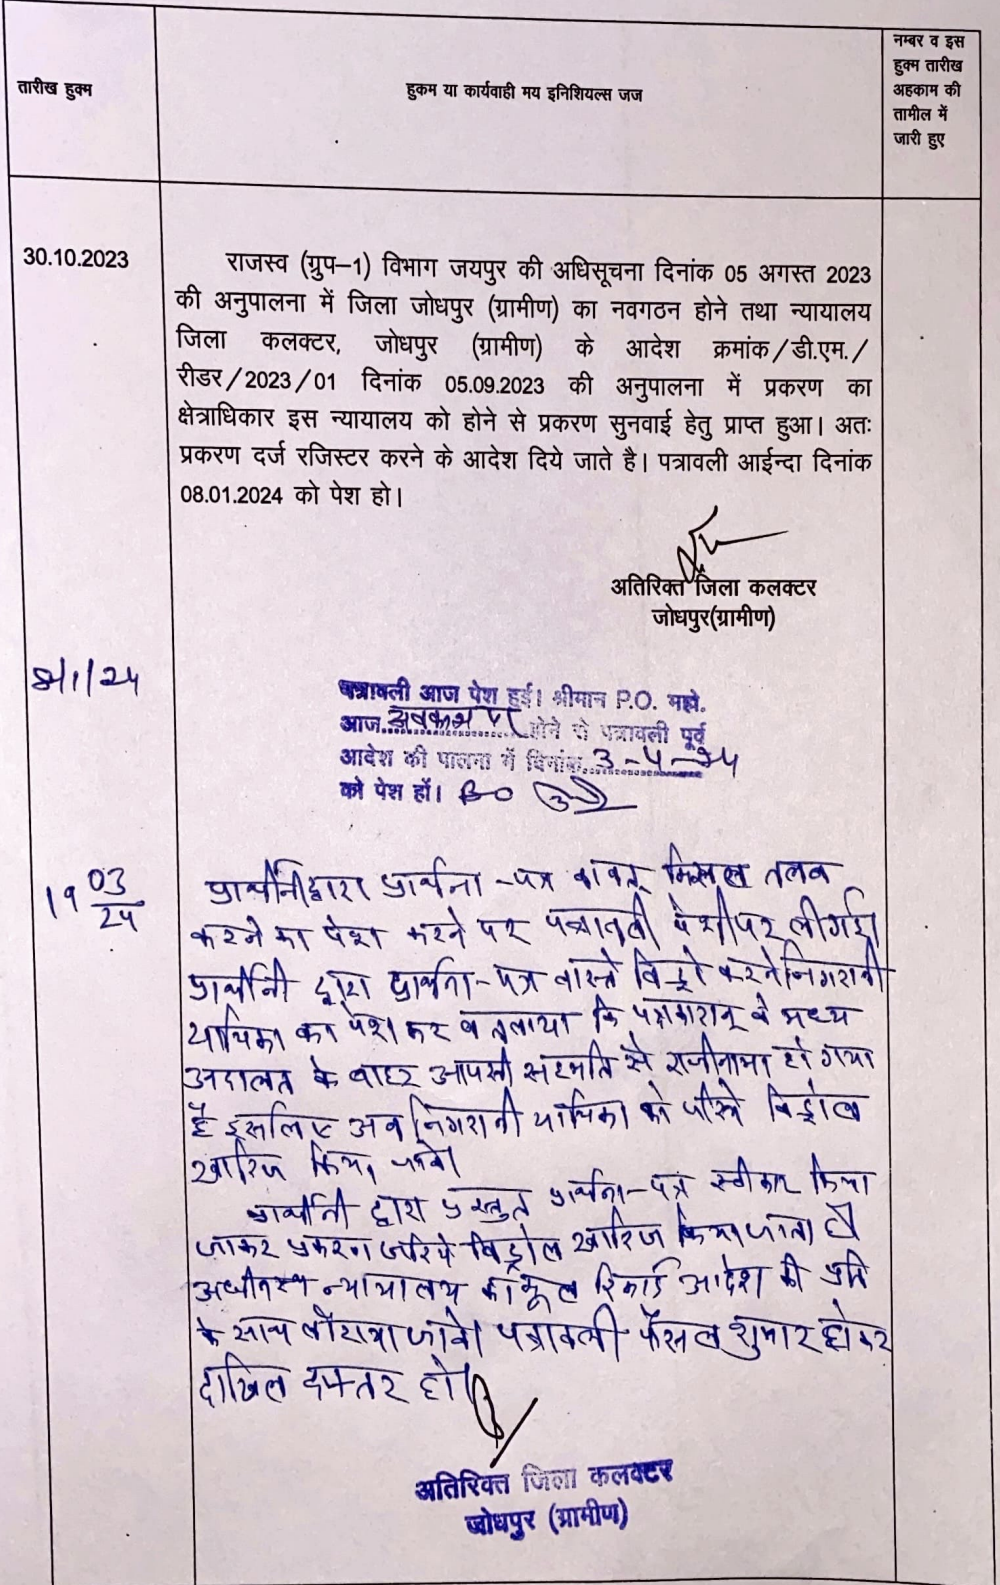 तारीख हुक्म
हुकम या कार्यवाही मय इनिशियल्स जज
नम्बर व इस
हुक्म तारीख
अहकाम की
तामील में
जारी हुए
30.10.2023
राजस्व (ग्रुप–1) विभाग जयपुर की अधिसूचना दिनांक 05 अगस्त 2023
की अनुपालना में जिला जोधपुर (ग्रामीण) का नवगठन होने तथा न्यायालय
जिला कलक्टर, जोधपुर (ग्रामीण) के आदेश क्रमांक/डी.एम./
रीडर/2023/01 दिनांक 05.09.2023 की अनुपालना में प्रकरण का
क्षेत्राधिकार इस न्यायालय को होने से प्रकरण सुनवाई हेतु प्राप्त हुआ। अतः
प्रकरण दर्ज रजिस्टर करने के आदेश दिये जाते है। पत्रावली आईन्दा दिनांक
08.01.2024 को पेश हो।
अतिरिक्त जिला कलक्टर
जोधपुर(ग्रामीण)
8/1/24
पत्रावली आज पेश हुई। श्रीमान P.O. महो.
आज अवकाश पर होने से पत्रावली पूर्व
आदेश की पालना में दिनांक 3-4-24
को पेश हों।
19 03/24
प्रार्थीनी द्वारा प्रार्थना-पत्र बाबत् मिसल तलब
करने का पेश करने पर पत्रावली पेशी पर ली गई।
प्रार्थीनी द्वारा प्रार्थना-पत्र वास्ते विड्रो करने निगरानी
याचिका का पेश कर बतलाया कि पक्षकारान् के मध्य
अदालत के बाहर आपसी सहमति से राजीनामा हो गया
है इसलिए अब निगरानी याचिका को जरिये विड्रोल
खारिज किया जावे।
प्रार्थीनी द्वारा प्रस्तुत प्रार्थना-पत्र स्वीकार किया
जाकर प्रकरण जरिये विड्रोल खारिज किया जाता है।
अधीनस्थ न्यायालय का मूल रिकार्ड आदेश की प्रति
के साथ लौटाया जावे। पत्रावली फैसल शुमार होकर
दाखिल दफ्तर हो।
अतिरिक्त जिला कलक्टर
जोधपुर (ग्रामीण)